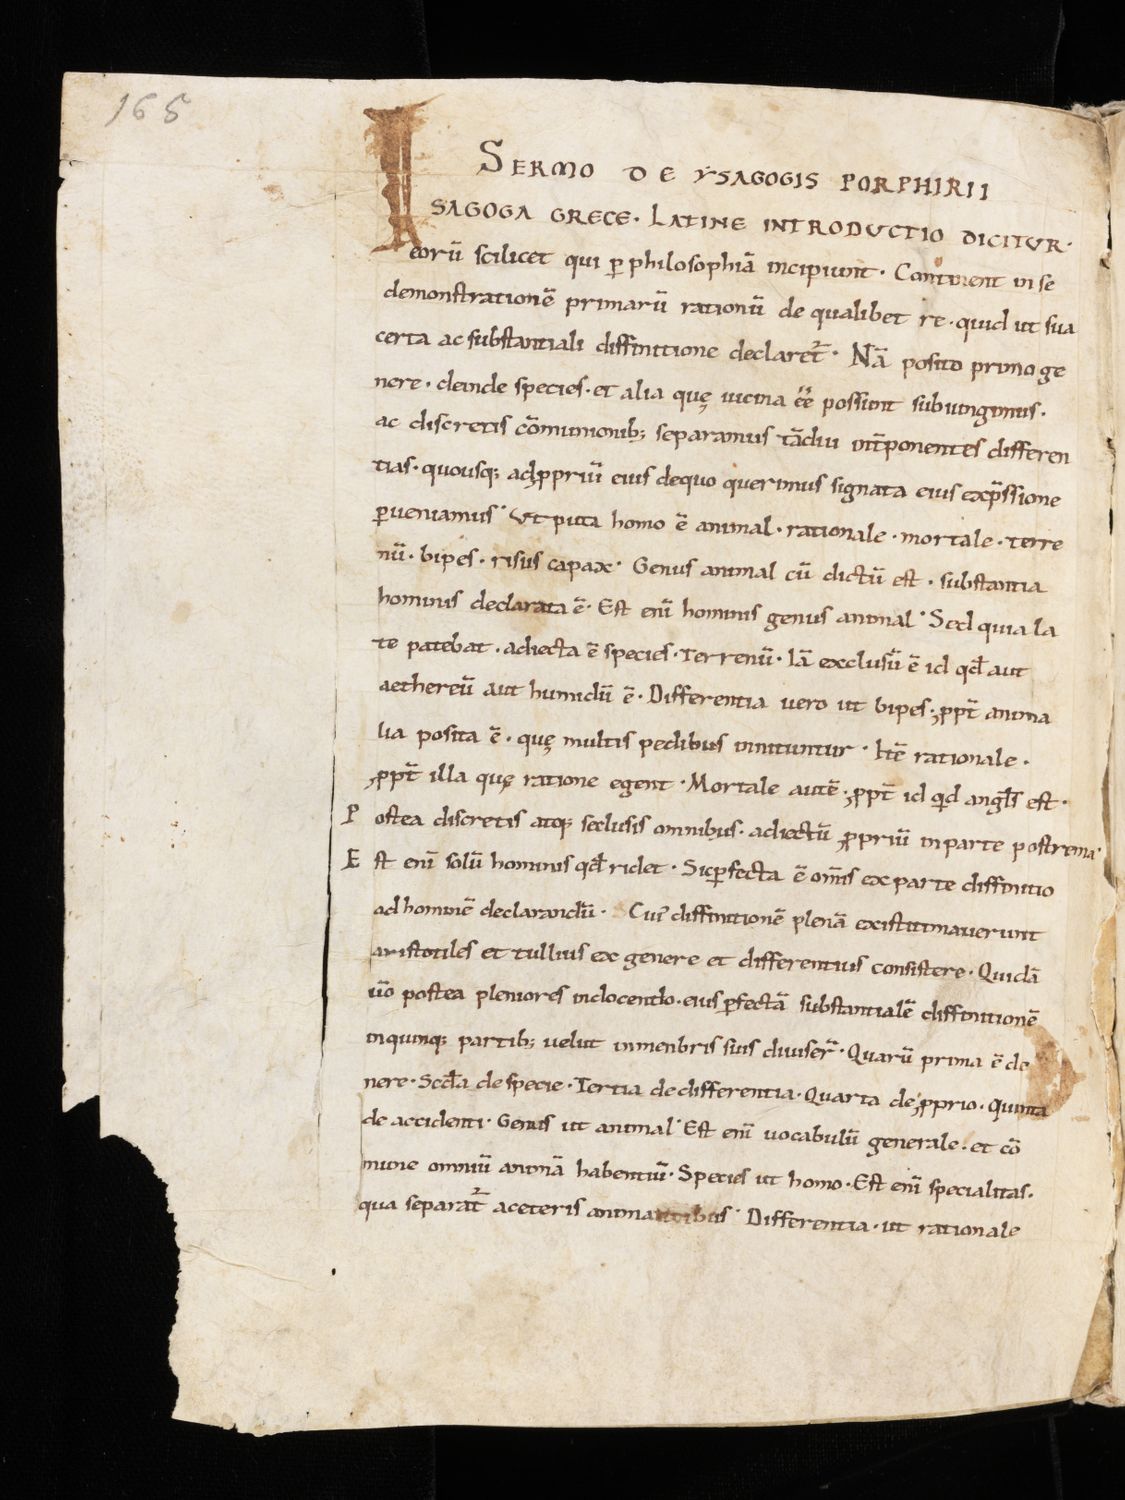 165
SERMO DE YSAGOGIS PORPHIRII
ISAGOGA GRECE· LATINE INTRODUCTIO DICITUR·
eorū scilicet qui ꝑ philosophiā incipiunt · Continent in se
demonstrationē primarū rationū de qualibet re · quid ut sua
certa ac substantiali diffinitione declaret᷑ · Nā posito primo ge
nere · deinde species · et alia quę uicina eē̄ possunt subiungimus ·
ac discretis cōmunionib; separamus tādiu int̄ponentes differen
tias · quousq; ad ꝓpriū eius de quo querimus signata eius exp̄ssione
ꝑueniamus · Ut puta homo ē animal · rationale · mortale · terre
nū · bipes · risus capax · Genus animal cū dictū est · substantia
hominis declarata ē · Est enī hominis genus animal · Sed quia la
te patebat · adiecta ē species · terrenū · Iā exclusū ē id qđ aut
aethereū aut humidū ē · Differentia uero ut bipes · ꝓpt̄ anima
lia posita ē · quę multis pedibus innituntur · Itē rationale ·
ꝓpt̄ illa quę ratione egent · Mortale autē · ꝓpt̄ id qđ angl̄s est ·
Postea discretis atq; seclusis omnibus · adiectū ꝓpriū in parte postrema·
Est enī solū hominis qđ ridet · Sic ꝑfecta ē om̄is ex parte diffinitio
ad hominē declarandū · Cui᷒ diffinitionē plenā existimauerunt
aristotiles et tullius ex genere et differentiis consistere · Quidā
ūo postea pleniores in docendo · eius ꝑfectā substantialē diffinitionē
in quinq; partib; uelut in menbris suis diuiser̄ · Quarū prima ē de
nere · Scđa de specie · Tertia de differentia · Quarta de ꝓprio · Quinta
de accidenti · Genus ut animal · Est enī uocabulū generale · et cō
mune omniū animā habentiū · Species ut homo · Est enī specialitas ·
qua separat᷑ a ceteris animantibus · Differentia · ut rationale